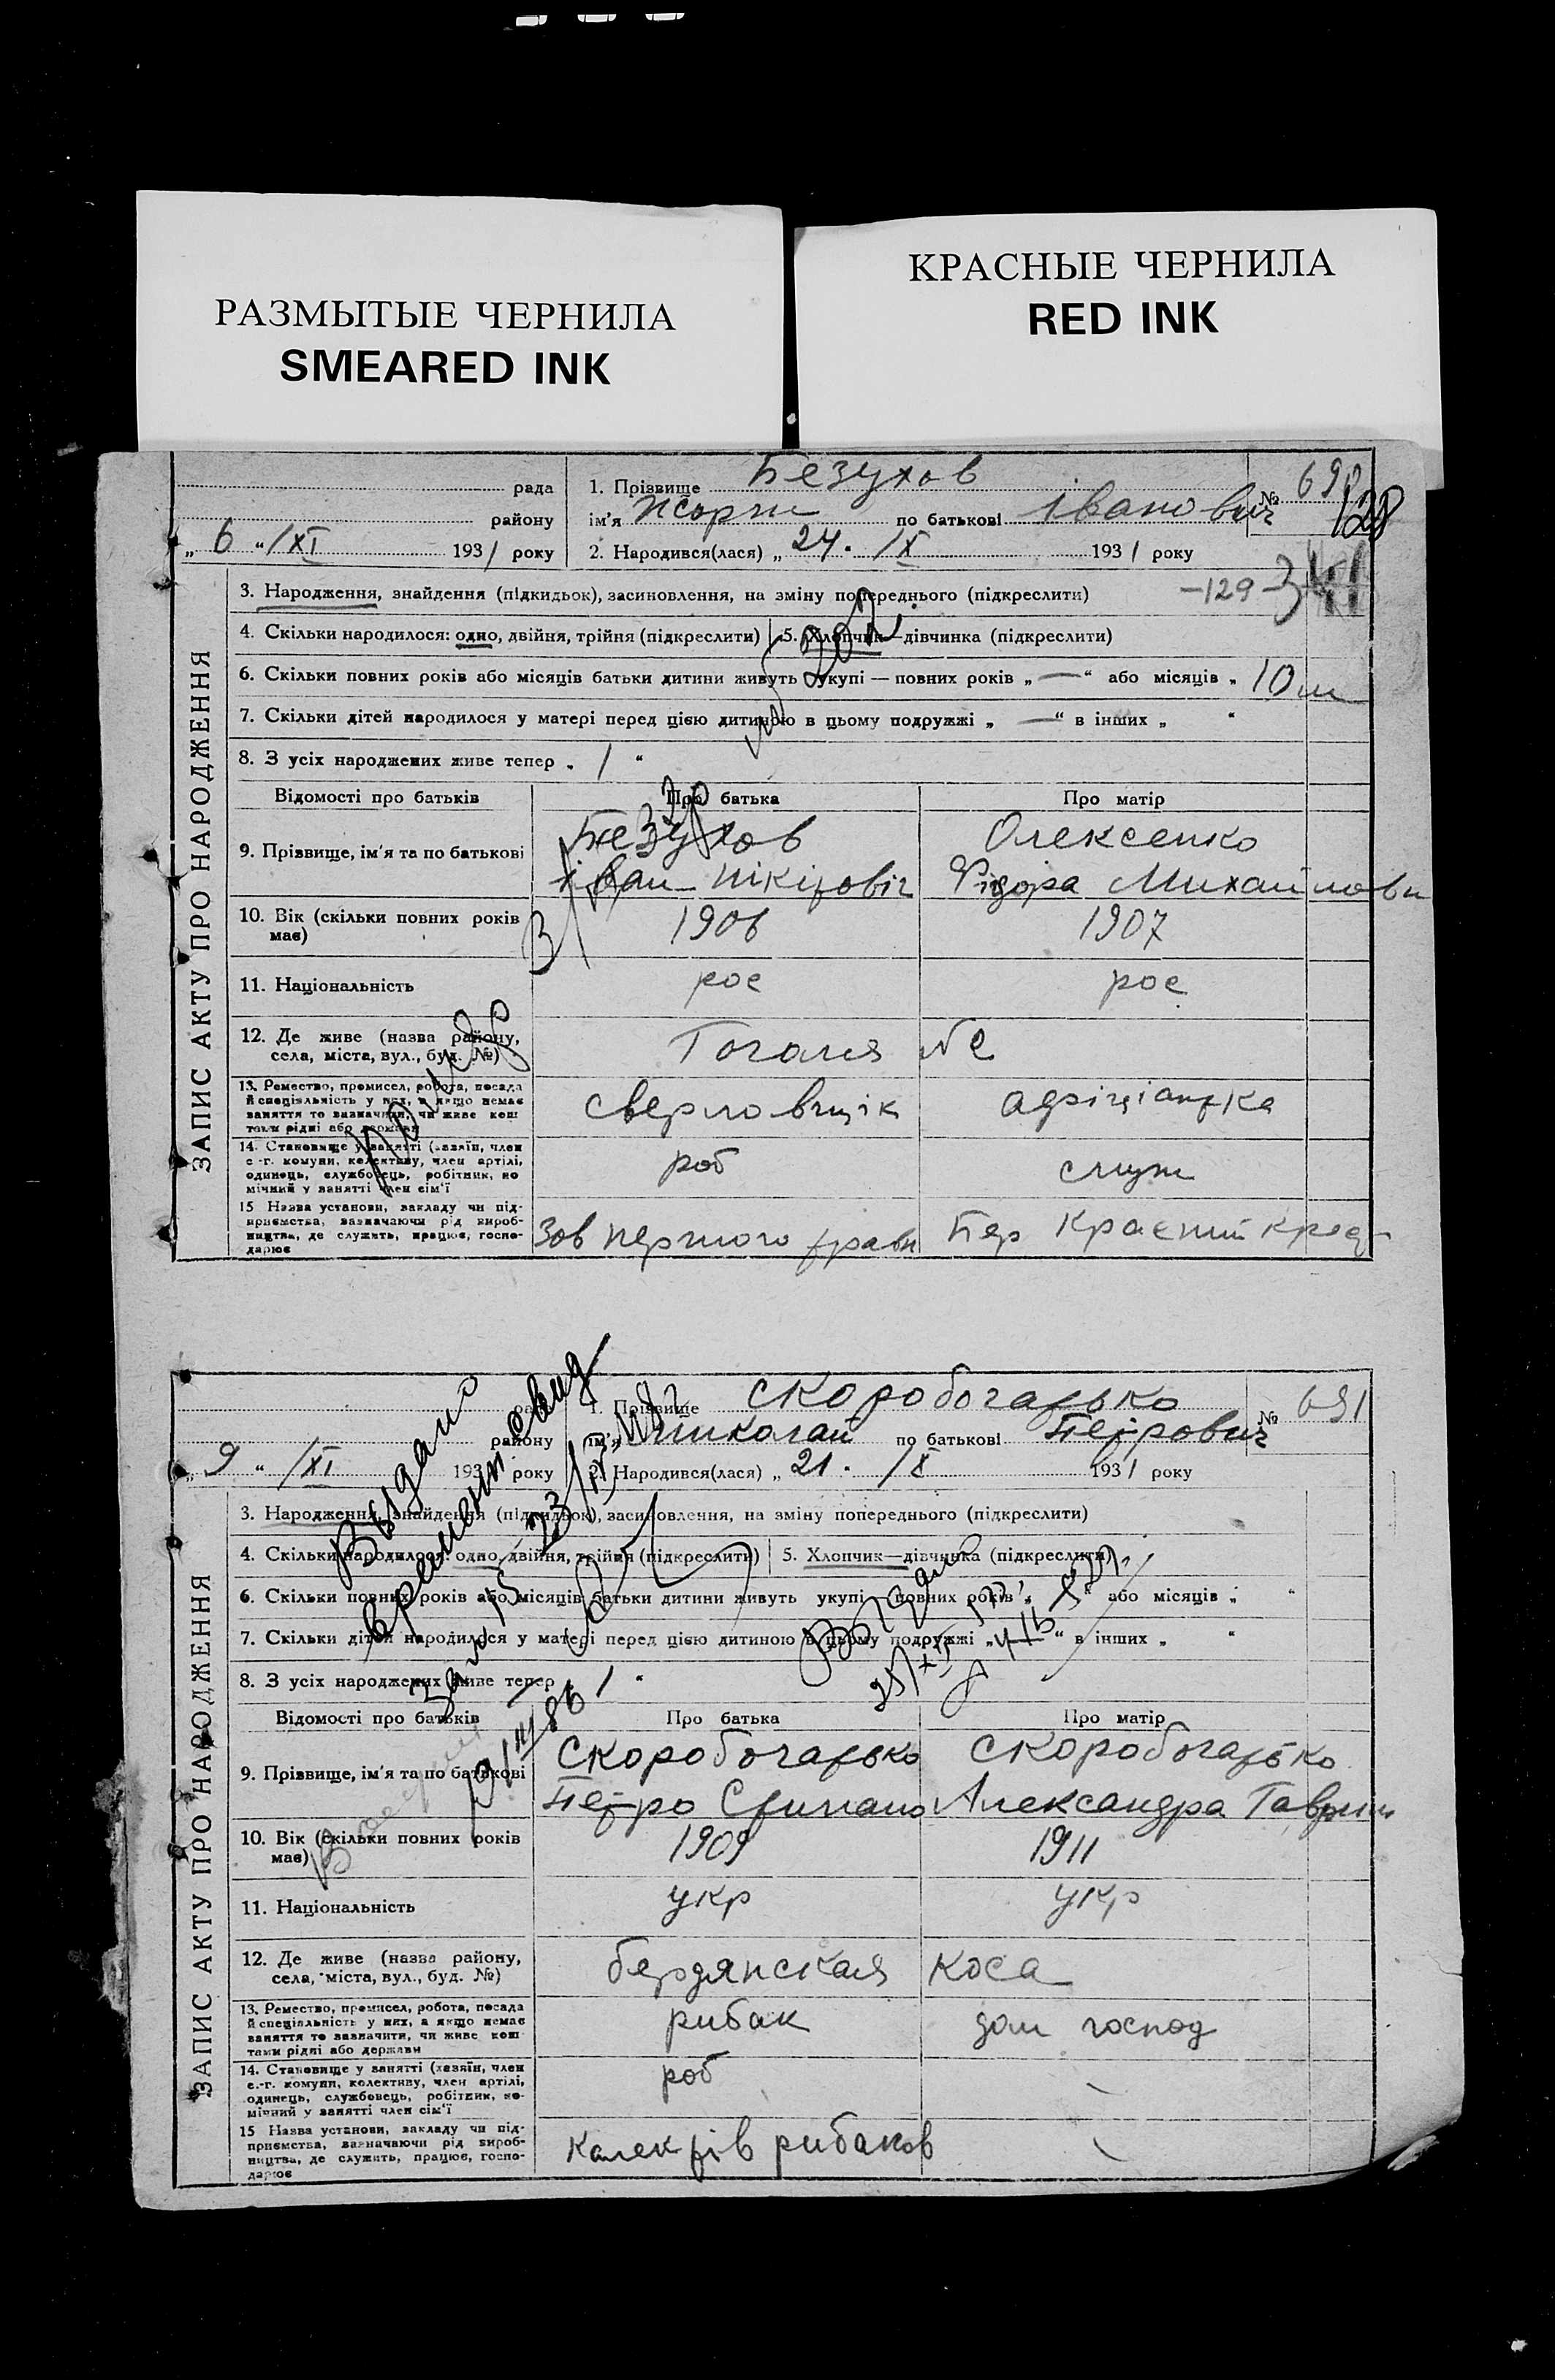 РАЗМЫТЫЕ ЧЕРНИЛА
SMEARED INK
КРАСНЫЕ ЧЕРНИЛА
RED INK
рада
району
„ 6 “ /XI 1931 року
1. Прізвище Безухов
ім'я Жорж по батькові Іванович
№ 690
128
2. Народився(лася) „ 24 . /X 1931 року
ЗАПИС АКТУ ПРО НАРОДЖЕННЯ
3. Народження, знайдення (підкидьок), засиновлення, на зміну попереднього (підкреслити)
-129- 341
4. Скільки народилося: одно, двійня, трійня (підкреслити) 5. Хлопчик—дівчинка (підкреслити)
6. Скільки повних років або місяців батьки дитини живуть укупі — повних років „ — “ або місяців „ 10 м
7. Скільки дітей народилося у матері перед цією дитиною в цьому подружжі „ — “ в інших „ “
8. З усіх народжених живе тепер „ 1 “
Відомості про батьків Про батька Про матір
9. Прізвище, ім'я та по батькові Безухов Олексенко
Іван Нікітовіч Фідора Михайловн
10. Вік (скільки повних років має) 1906 1907
11. Національність рос рос
12. Де живе (назва району, села, міста, вул., буд. №) Гоголя №
13. Ремество, промисел, робота, посада й спеціяльність у них, а якщо немає заняття то визначити, чи живе коштами рідні або держави
сверловщік офіціантка
14. Становище у занятті (хазяїн, член с.-г. комуни, колективу, член артілі, одинець, службовець, робітник, помічний у занятті член сім'ї
роб служ
15 Назва установи, закладу чи підприємства, зазначаючи рід виробництва, де служить, працює, господарює
Зов першого травн Бер Краєний
рада
району
„ 9 “ /XI 1931 року
1. Прізвище Скоробогатько
ім'я Николай по батькові Петрович
№ 691
2. Народився(лася) „ 21 . /X 1931 року
ЗАПИС АКТУ ПРО НАРОДЖЕННЯ
3. Народження, знайдення (підкидьок), засиновлення, на зміну попереднього (підкреслити)
4. Скільки народилося: одно, двійня, трійня (підкреслити) 5. Хлопчик—дівчинка (підкреслити)
6. Скільки повних років або місяців батьки дитини живуть укупі — повних років „ “ або місяців „ “
7. Скільки дітей народилося у матері перед цією дитиною в цьому подружжі „ “ в інших „ “
8. З усіх народжених живе тепер „ 1 “
Видано
времени свид
Відомості про батьків Про батька Про матір
9. Прізвище, ім'я та по батькові Скоробогатько Скоробогатько
Петро Степано Александра Гаврил
10. Вік (скільки повних років має) 1909 1911
11. Національність укр укр
12. Де живе (назва району, села, міста, вул., буд. №) бердянская коса
13. Ремество, промисел, робота, посада й спеціяльність у них, а якщо немає заняття то зазначити, чи живе коштами рідні або держави
рибак дом господ
14. Становище у занятті (хазяїн, член с.-г. комуни, колективу, член артілі, одинець, службовець, робітник, помічний у занятті член сім'ї
роб
15 Назва установи, закладу чи підприємства, зазначаючи рід виробництва, де служить, працює, господарює
Калектів рибаков